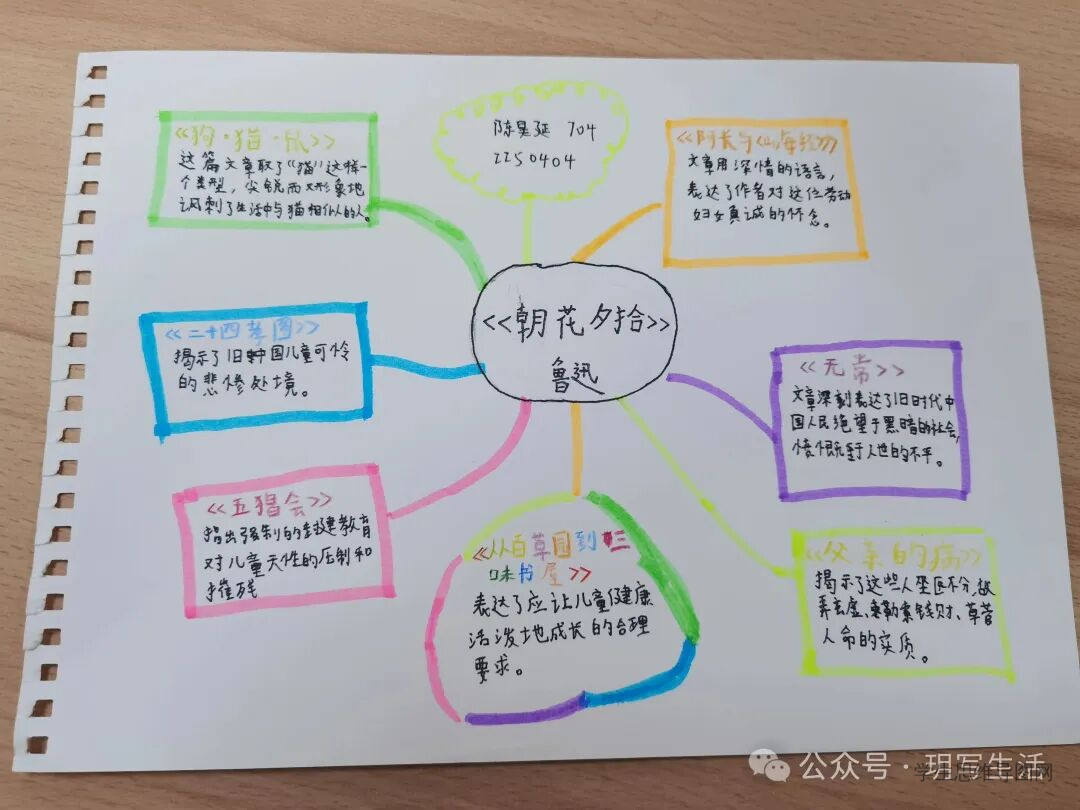 陈昊延 704
2250404
《狗·猫·鼠》
这篇文章取了"猫"这样一
个类型，尖锐而又形象地
讽刺了生活中与猫相似的人。
《阿长与《山海经》》
文章用深情的语言，
表达了作者对这位劳动
妇女真诚的怀念。
《朝花夕拾》
鲁迅
《二十四孝图》
揭示了旧中国儿童可怜
的悲惨处境。
《无常》
文章深刻表达了旧时代中
国人民绝望于黑暗的社会，
愤恨于人世的不平。
《五猖会》
指出强制的封建教育
对儿童天性的压制和
摧残
《从百草园到三
味书屋》
表达了应让儿童健康
活泼地成长的合理
要求。
《父亲的病》
揭示了这些人巫医不分，故
弄玄虚、勒索钱财、草菅
人命的实质。
公众号·玥写生活
学生思维导图网